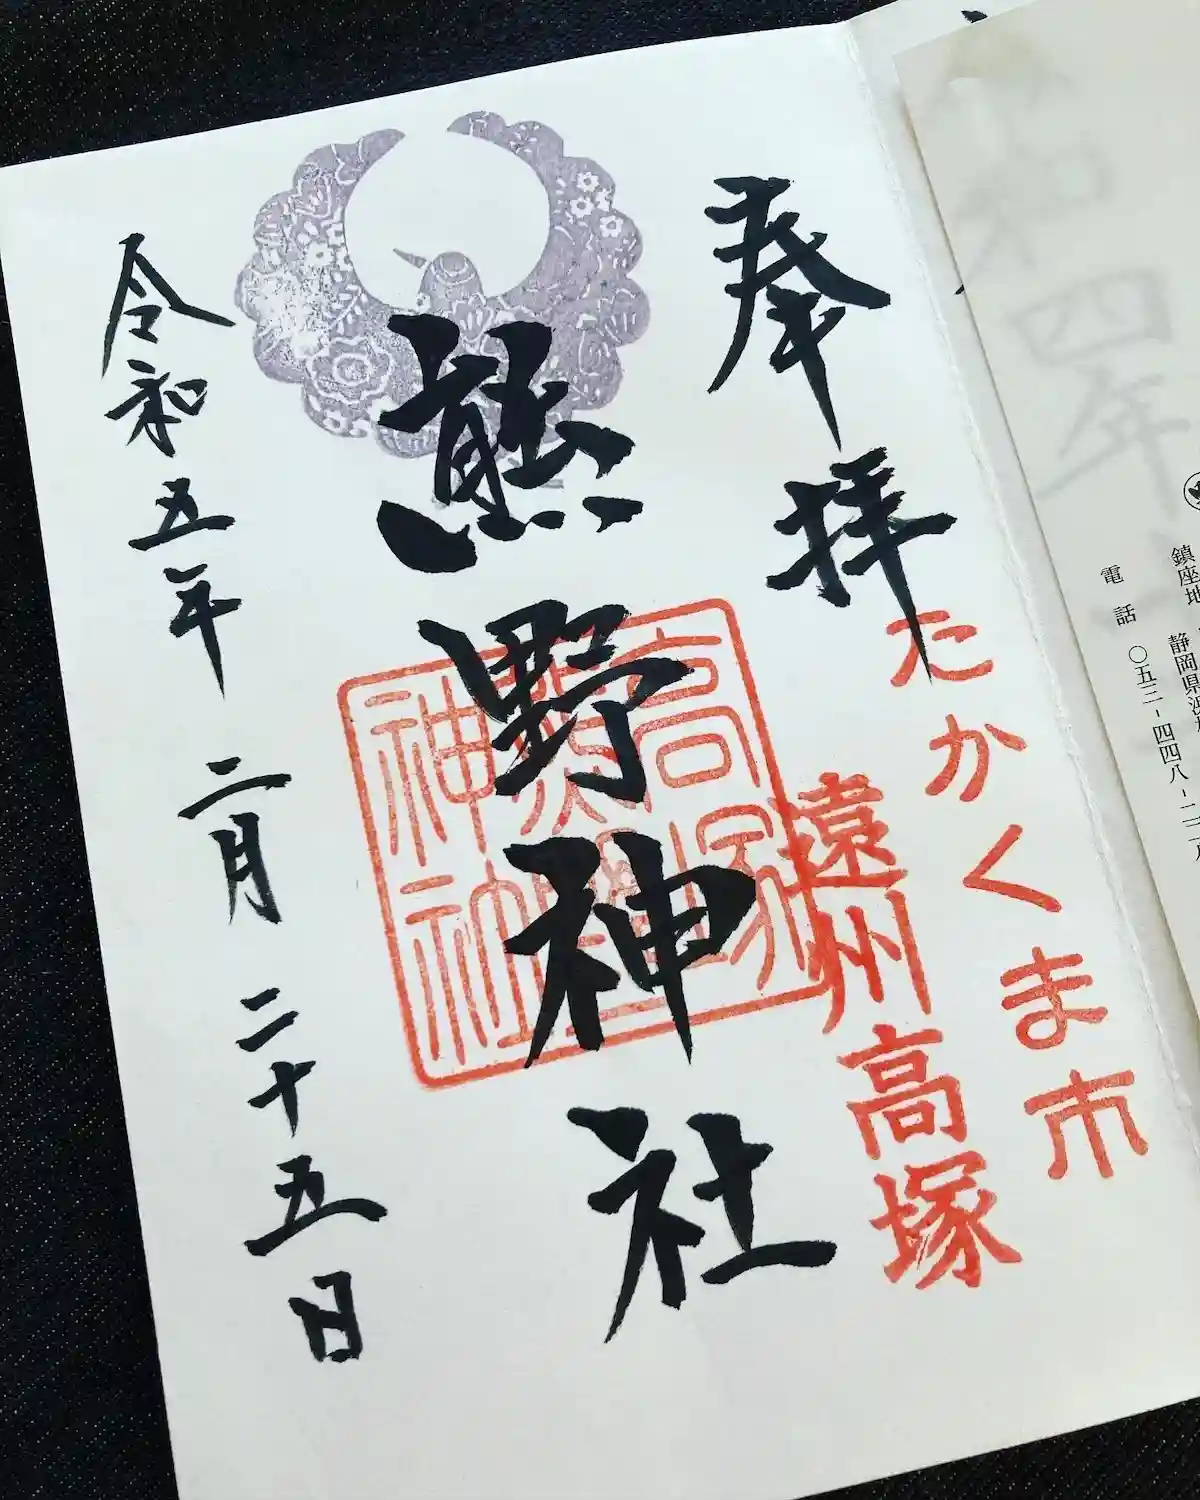 鎮座地 静岡県浜
電話 〇五三-四四八-二
和四年
奉拝
たかくま市
遠州高塚
熊野神社
高塚
熊野
神社
令和五年 二月 二十五日